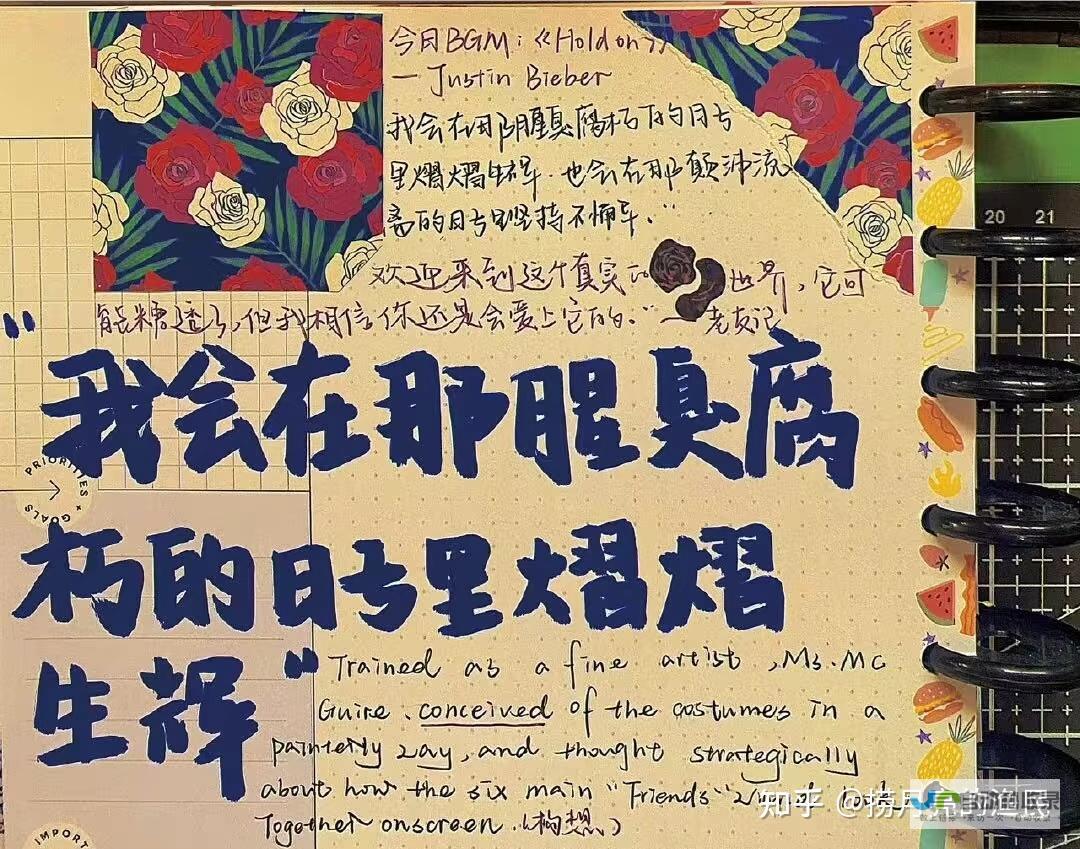 今日BGM:《Hold on》
— Justin Bieber
我会在那腥臭腐朽的日亏
里熠熠生辉.也会在那颠沛流
离的日亏里坚持不懈.”
欢迎来到这个真实的 世界,它可
能糟透了,但我相信你还是会爱上它的.”—老友记
“我会在那腥臭腐
朽的日亏里熠熠
生辉”
PRIORITIES + GOALS
Trained as a fine artist, Ms. Mc
Guire conceived of the costumes in a
painterly way, and thought strategically
about how the six main "Friends" look
Together onscreen. (构想)
IMPORT
20 21
知乎 @捞月亮的渔民